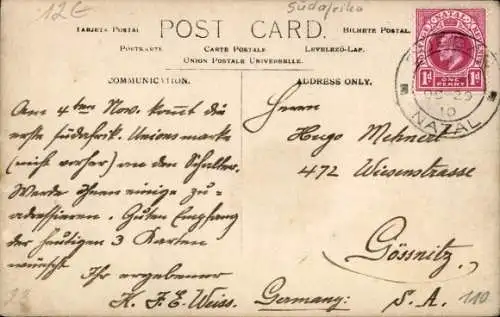 12€
Südafrika
POST CARD.
TARJETA POSTAL
BILHETE POSTAL.
POSTKARTE
CARTE POSTALE.
LEVELEZÖ-LAP.
UNION POSTALE UNIVERSELLE.
COMMUNICATION.
ADDRESS ONLY.
NATAL
1d
ONE PENNY
1d
10
NATAL
Am 4ten Nov. kommt die
erste südafrik. Unionsmarke
(nicht vorher) an den Schalter.
Werde Ihnen einige zu-
adressieren. Guten Empfang
der heutigen 3 Karten
wünscht
Ihr ergebener
H. F. E. Weiss.
Herrn
Hugo Mehnert
472 Wiesenstrasse
Gössnitz,
Germany: S. A.
110